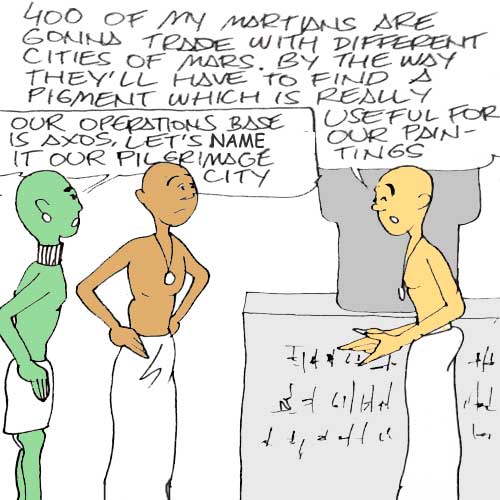 400 OF MY MARTIANS ARE
GONNA TRADE WITH DIFFERENT
CITIES OF MARS. BY THE WAY
THEY'LL HAVE TO FIND A
PIGMENT WHICH IS REALLY
USEFUL FOR
OUR PAIN-
TINGS
OUR OPERATIONS BASE
IS AXOS, LET'S NAME
IT OUR PILGRIMAGE
CITY